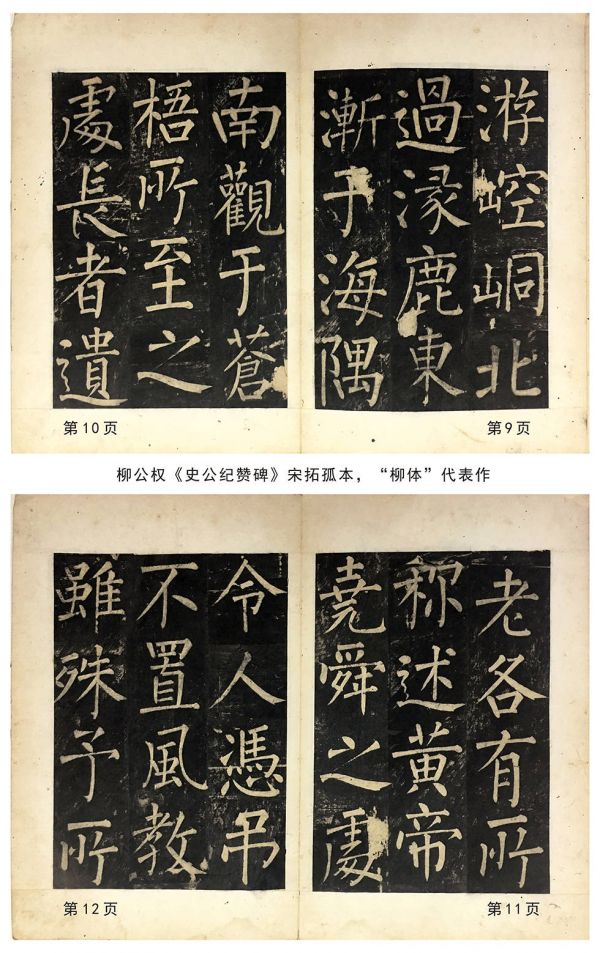 游崆峒北
過涿鹿東
漸于海隅
第9页
南觀于蒼
梧所至之
處長者遺
第10页
柳公权《史公纪赞碑》宋拓孤本，“柳体”代表作
老各有所
称述黄帝
堯舜之處
第11页
令人憑吊
不置風教
雖殊予所
第12页